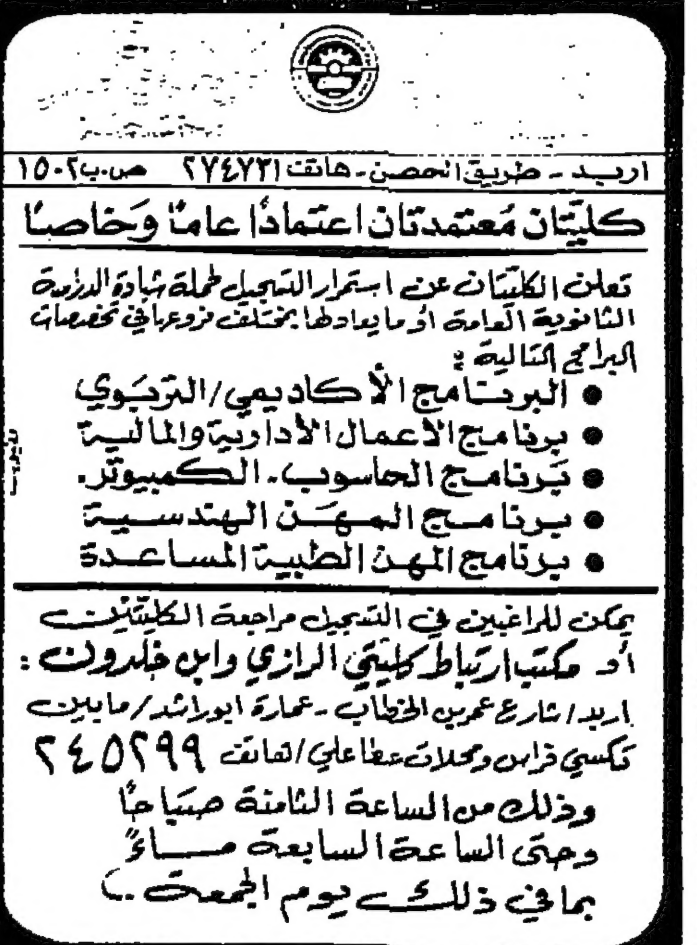 اربد - طريق الحصن - هاتف ٢٧٤٧٣١ ص.ب ١٥٠٢
كليّتان مُعتمدتان اعتمادًا عامًا وَخاصًا
تعلن الكليّتان عن استمرار التسجيل لحملة شهادة الدراسة
الثانوية العامة أو ما يعادلها بمختلف فروعها في تخصصات
البرامج التالية :
• البرنامج الأكاديمي/التربَوي
• برنامج الأعمال الأدارية والمالية
• بَرنامج الحاسوب - الكمبيوتر.
• برنامج المهَن الهندسية
• برنامج المهن الطبية المساعدة
يمكن للراغبين في التسجيل مراجعة الكليّتين
أو مكتب ارتباط كليّتي الرازي وابن خلدون :
اربد / شارع عمر بن الخطاب - عمارة ابوراشد / مابين
تكسي فراس ومحلات عطا علي / هاتف ٢٤٥٢٩٩
وذلك من الساعة الثامنة صبَاحًا
وحتى الساعة السابعة مساءً
بما في ذلك يوم الجمعة .